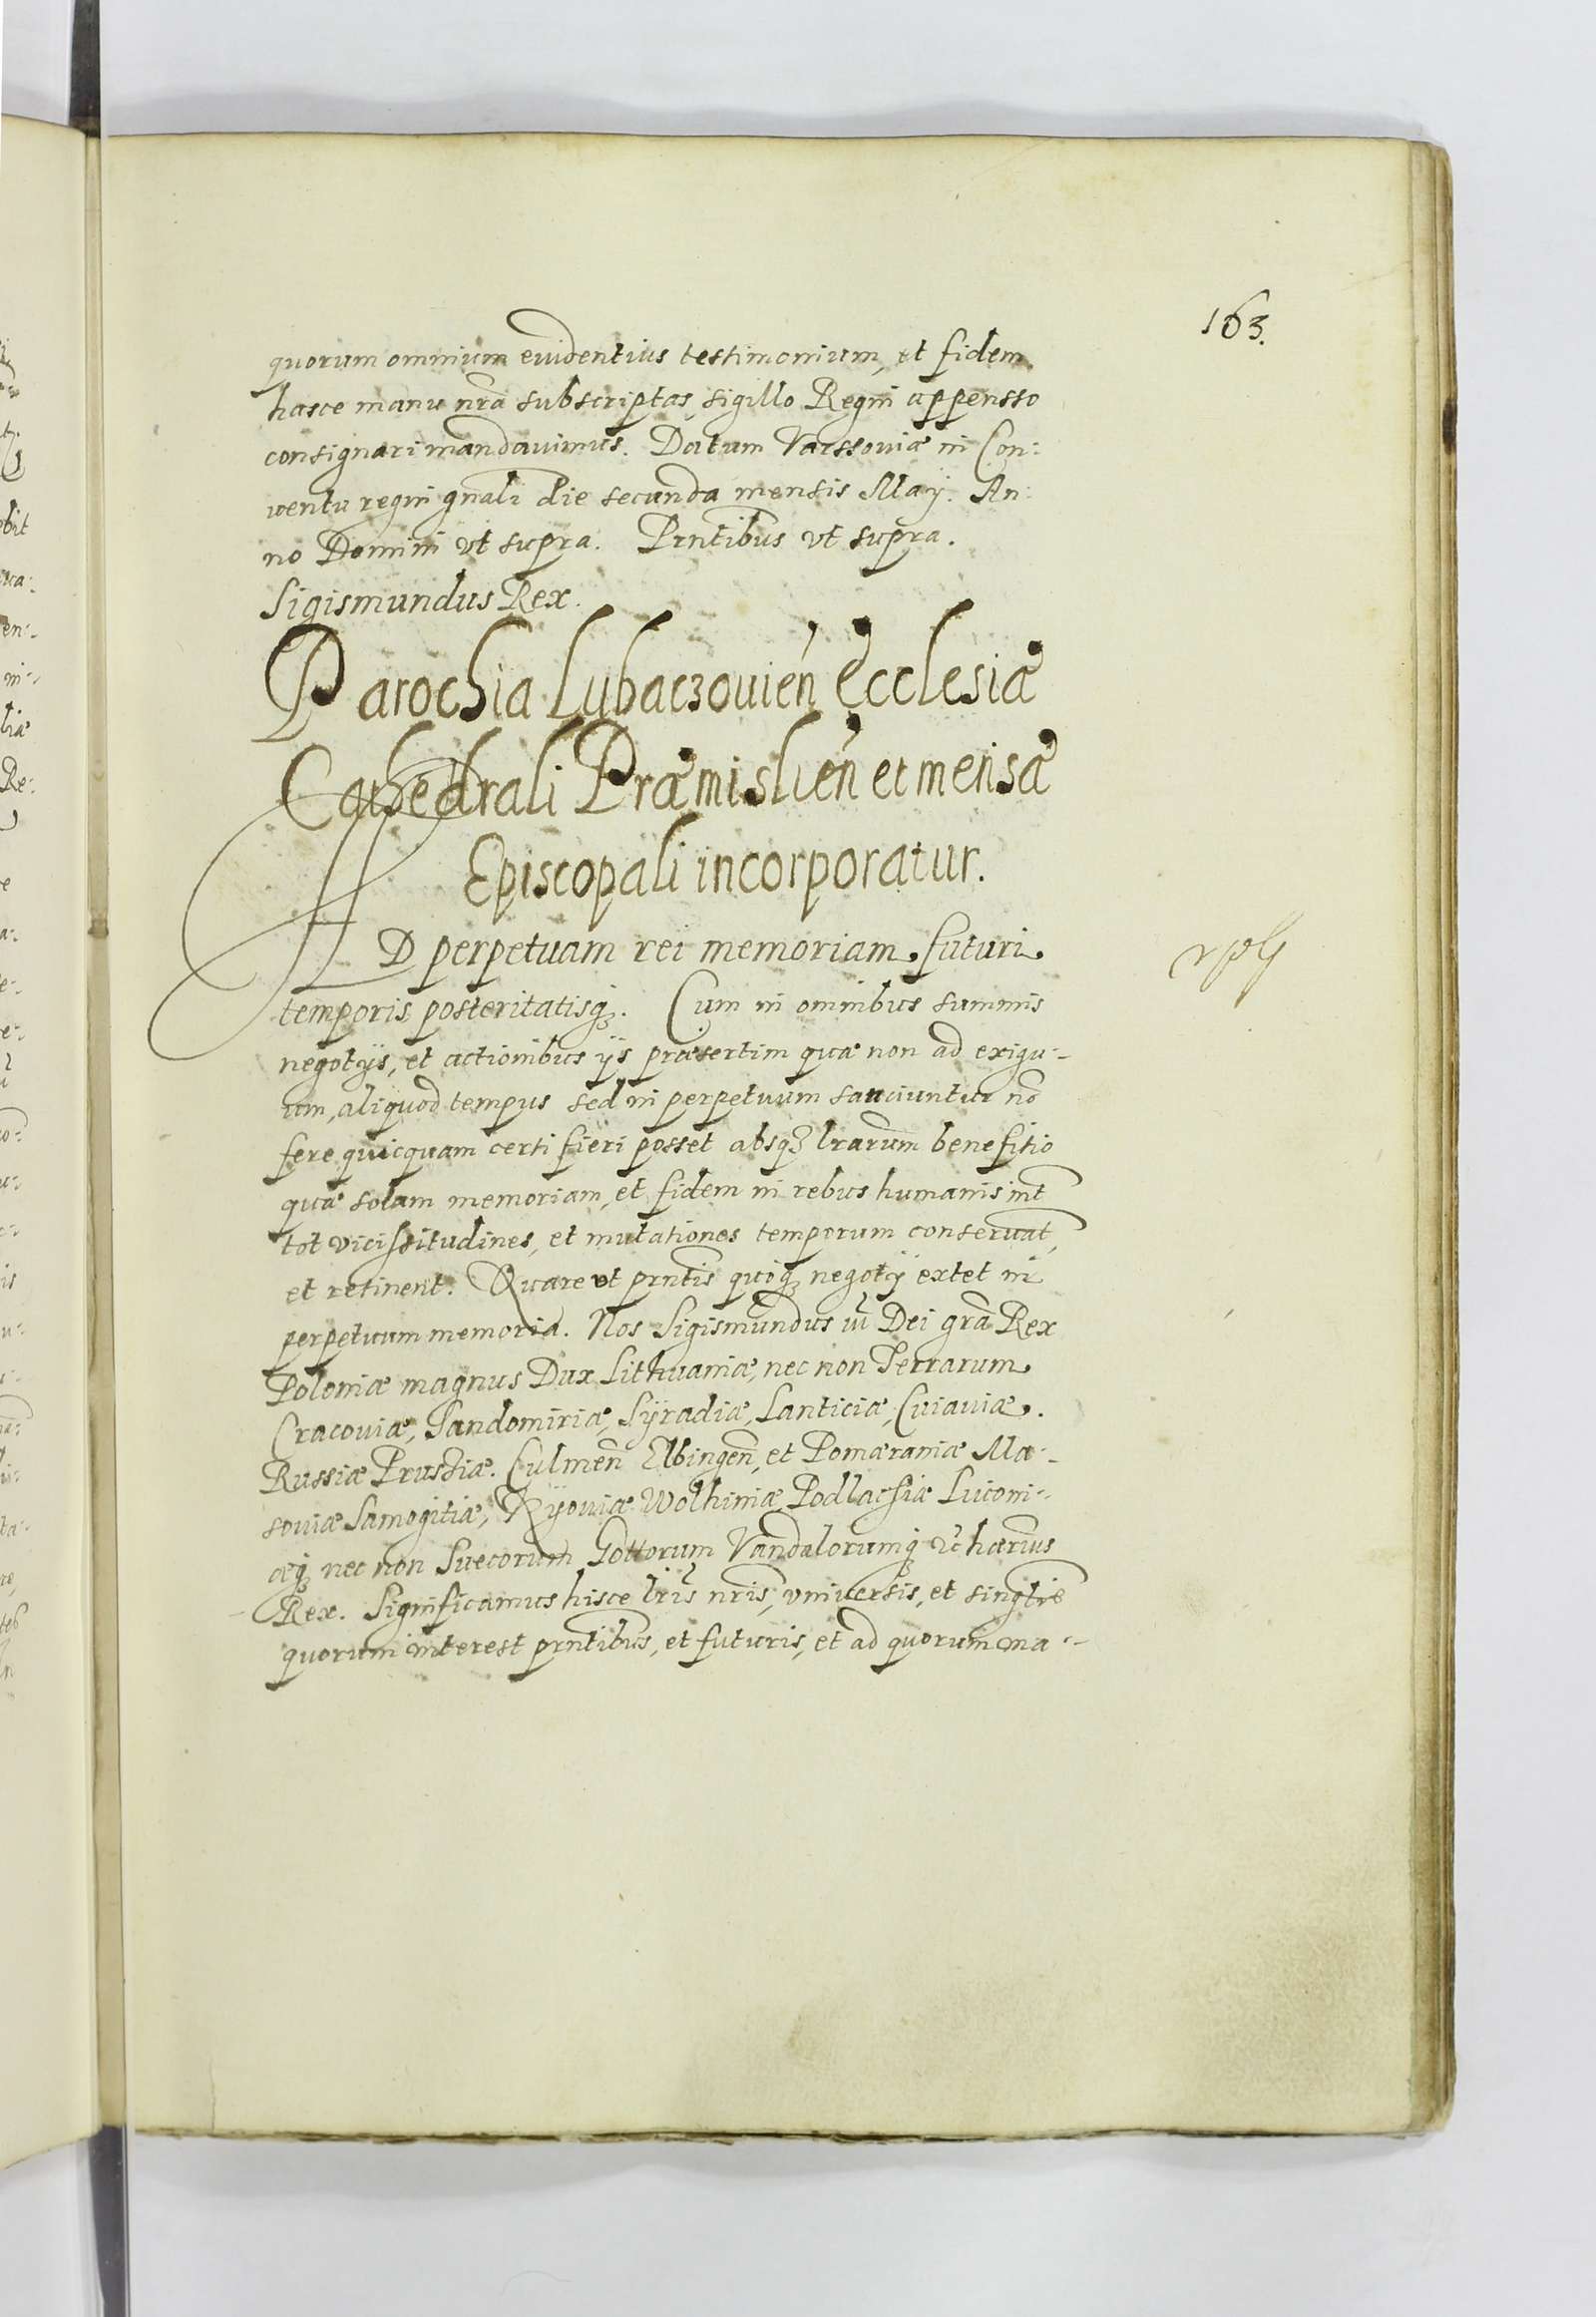 163.
quorum omnium euidentius testimonium, et fidem
hasce manu nrã subscriptas, sigillo Regni appensso
consignari mandauimus. Datum Varssouiæ in Con:
uentu regni gnãli die secunda mensis Maÿ. An:
no Domini vt supra. Prntibus vt supra.
Sigismundus Rex.
Parochia Lubaczouień Ecclesiæ
Cathedrali Præmislień et mensæ
Episcopali incorporatur.
AD perpetuam rei memoriam futuri
temporis posteritatisq;. Cum in omnibus summis
negotÿs, et actionibus ÿs præsertim quæ non ad exigu:
um, aliquod tempus sed in perpetuum sanciuntur nõ
fere quicquam certi fieri posset absq; lrarum benefitio
quæ solam memoriam, et fidem in rebus humanis int
tot vicissitudines, et mutationes temporum conseruat,
et retinent. Quare vt prntis quoq; negotÿ extet in
perpetuum memoria. Nos Sigismundus iii Dei grã Rex
Poloniæ magnus Dux Lithuaniæ, nec non Terrarum
Cracouiæ, Sandomiriæ, Sÿradiæ, Lanticiæ, Cuiauiæ.
Russiæ Prussiæ. Culmeñ Elbingeñ, et Pomæraniæ Ma:
souiæ Samogitiæ, Kÿouiæ Wolhiniæ Podlachiæ Liuoni:
æq; nec non Suecorum Gottorum Vandalorumq; hærius
Rex. Significamus hisce lris nris, vniuersis, et singlis
quorum interest prntibus, et futuris, et ad quorum ma: